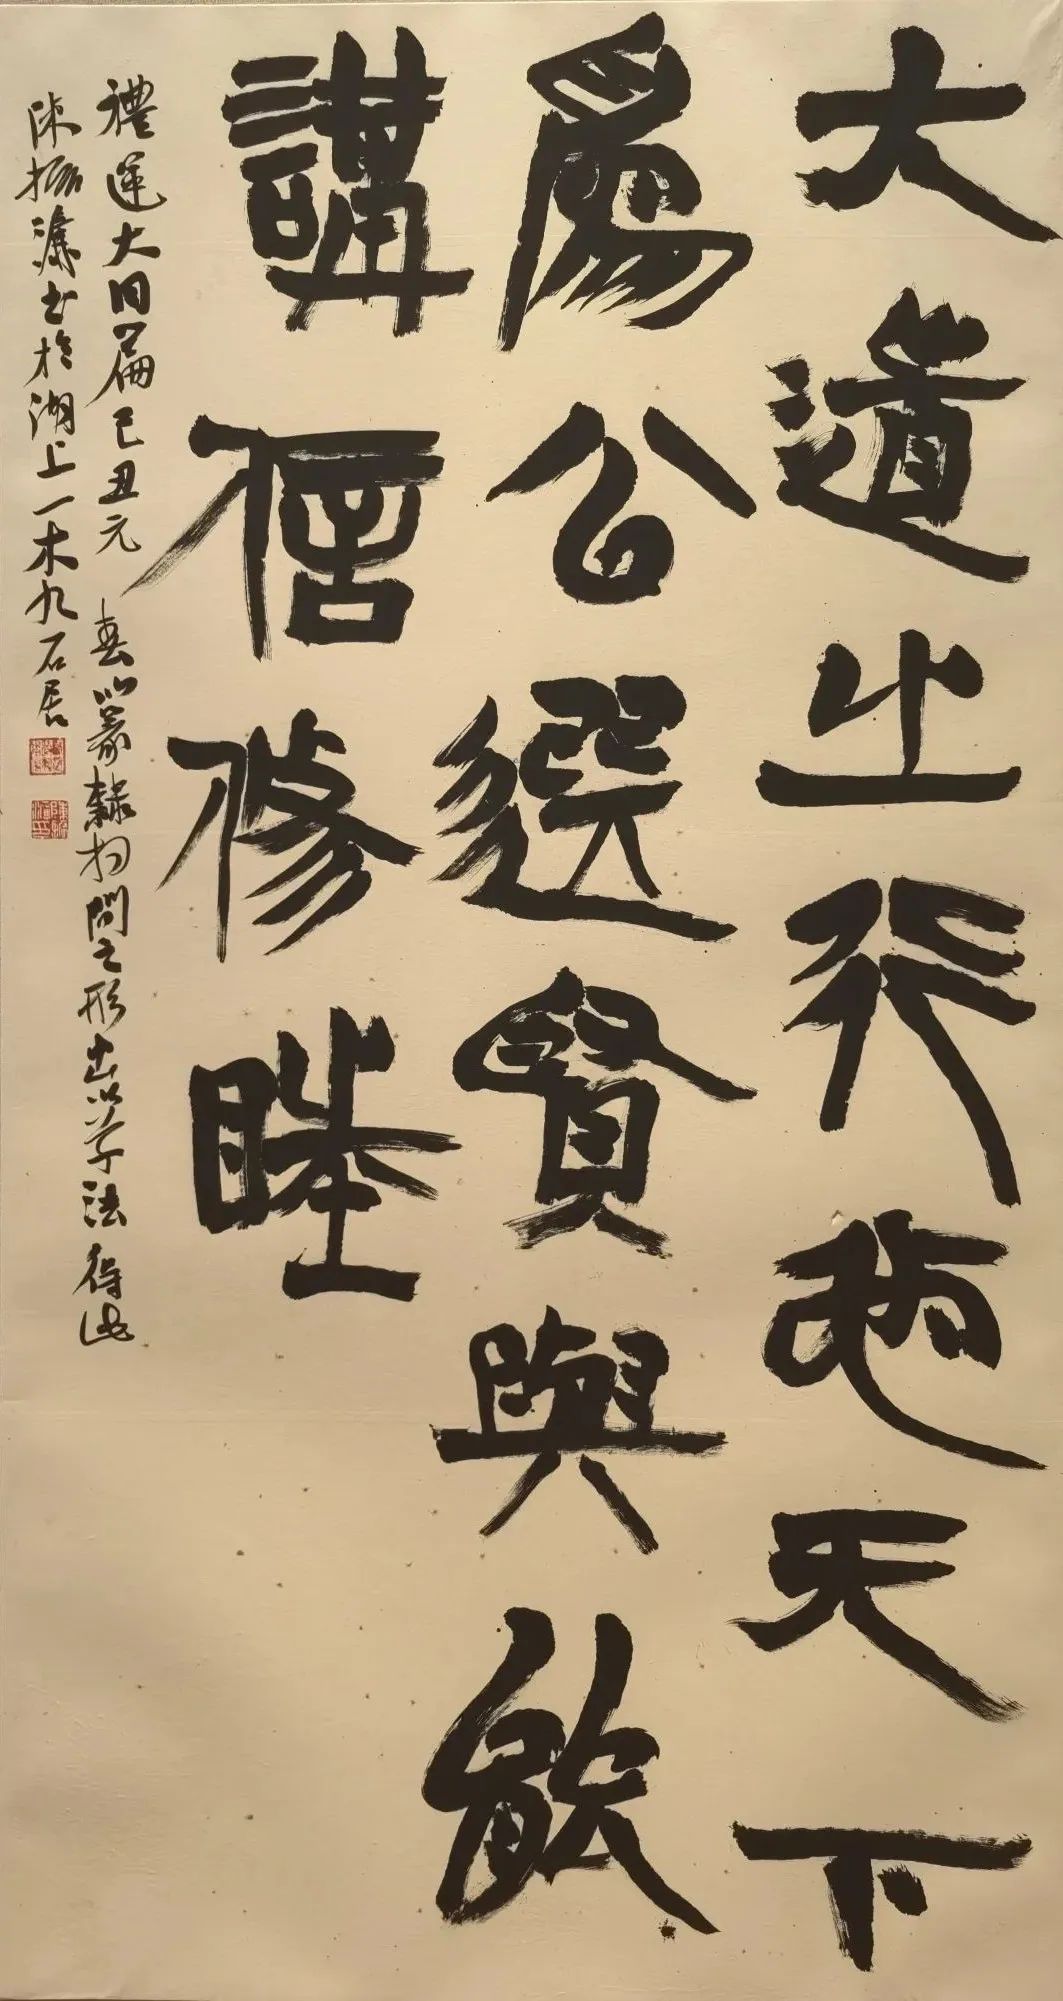 大道之行也天下
為公選賢與能
講信修睦
禮運大同篇己丑元春以篆隸相間之形出以草法得此
陳振濂書於湖上一木九石居